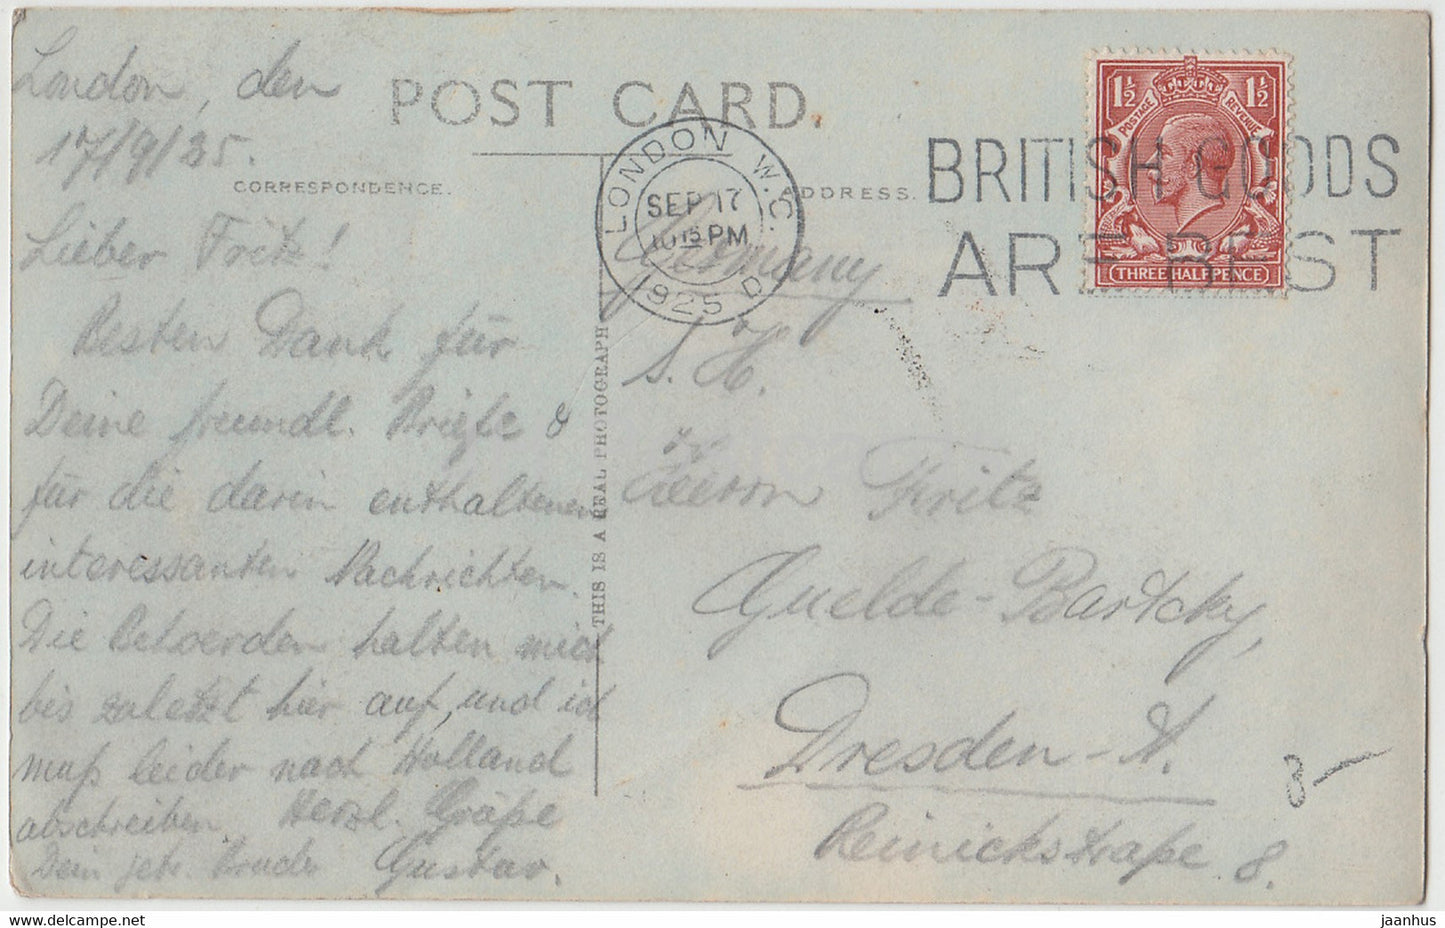 London, den
17/9/25.
POST CARD.
CORRESPONDENCE.
ADDRESS.
Lieber Fritz!
Besten Dank für
Deine freundl. Briefe &
für die darin enthaltenen
interessanten Nachrichten.
Die Behoerden halten mich
bis zuletzt hier auf, und ich
muß leider nach Holland
abschreiben. Herzl. Grüße
Dein getr. Bruder Gustav.
THIS IS A REAL PHOTOGRAPH
LONDON W.C.
SEP 17
10 15 PM
1925
BRITISH GOODS
ARE BEST
1½ 1½
POSTAGE REVENUE
THREE HALFPENCE
Germany
S. H.
Herrn Fritz
Guelde-Bartcky,
Dresden-A.
Reinickstraße 8.
8-
jaanhus
hippostcard.com